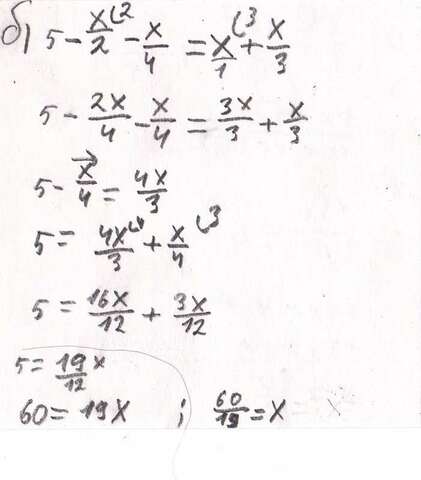 б) 5 - x/2 - x/4 = x/1 + x/3
5 - 2x/4 - x/4 = 3x/3 + x/3
5 - x/4 = 4x/3
5 = 4x/3 + x/4
5 = 16x/12 + 3x/12
5 = 19/12 x
60 = 19x ; 60/19 = x